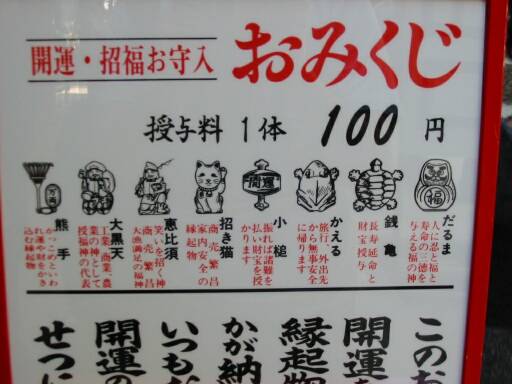 開運・招福お守入
おみくじ
授与料 1体 100 円
だるま
人に忍と福と
寿命の三徳を
与える福の神
銭亀
長寿延命と
財宝授与
かえる
旅行、外出先
から無事安全
に帰ります
小槌
振れば諸難を
払い財宝を授
かります
招き猫
商売繁昌
家内安全の
縁起物
恵比須
笑いを招く神
商売繁昌
大漁満足の福神
大黒天
工業、商業、農
業の神として
授福神の代表
熊手
かっこめといわ
れ運や財をかき
込む縁起物
このお
開運を
縁起物
かが納
いつもだ
開運の
せつに